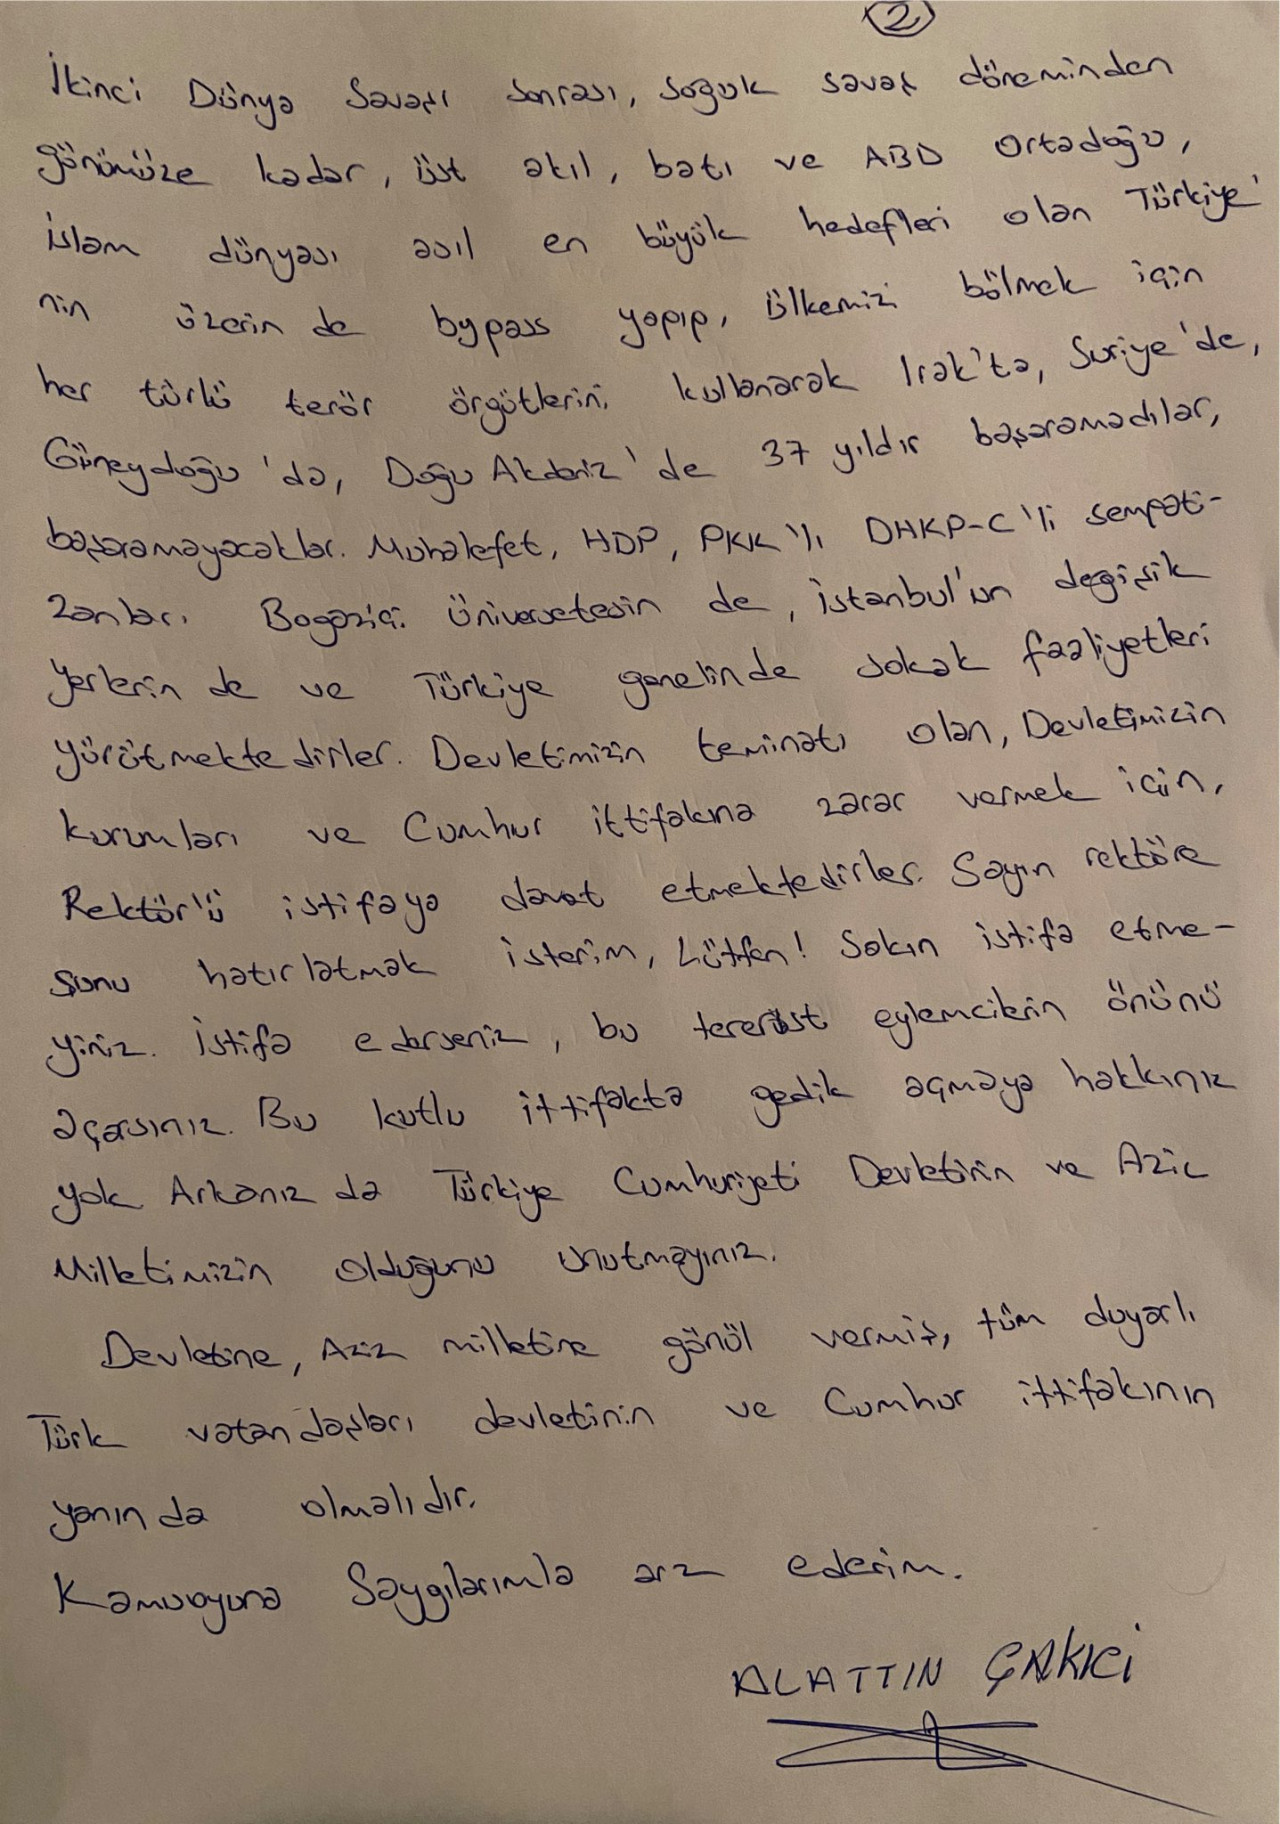 2
İkinci Dünya Savaşı sonrası, soğuk savaş döneminden
günümüze kadar, üst akıl, batı ve ABD Ortadoğu,
İslam dünyası asıl en büyük hedefleri olan Türkiye'
nin üzerin de bypass yapıp, ülkemizi bölmek için
her türlü terör örgütlerini kullanarak Irak'ta, Suriye'de,
Güneydoğu'da, Doğu Akdeniz'de 37 yıldır başaramadılar,
başaramayacaklar. Muhalefet, HDP, PKK'lı DHKP-C'li sempati-
zanları Bogaziçi Üniversetesin de, İstanbul'un degişik
yerlerin de ve Türkiye genelinde sokak faaliyetleri
yürütmektedirler. Devletimizin teminatı olan, Devletimizin
kurumları ve Cumhur ittifakına zarar vermek için,
Rektör'ü istifaya davat etmektedirler. Sayın rektöre
şunu hatırlatmak isterim, Lütfen! Sakın istifa etme-
yiniz. İstifa ederseniz, bu tererist eylemcilerin önünü
açarsınız. Bu kutlu ittifakta gedik açmaya hakkınız
yok. Arkanız da Türkiye Cumhuriyeti Devletinin ve Aziz
Milletimizin olduğunu unutmayınız.
Devletine, Aziz milletine gönül vermiş, tüm duyarlı
Türk vatandaşları devletinin ve Cumhur ittifakının
yanında olmalıdır.
Kamuoyuna Saygılarımla arz ederim.
ALATTIN ÇAKICI